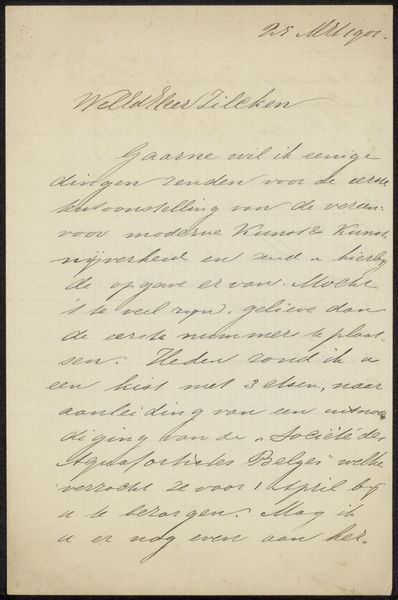 25 Mrt 1901.
WelEdHeer Zilcken
Gaarne wil ik eenige
dingen zenden voor de eerste
tentoonstelling van de vereen.
voor moderne Kunst & Kunst
nijverheid en zend u hierbij
de opgave er van. Mocht
't te veel zijn, gelieve dan
de eerste nummers te plaat-
sen. Heden zond ik u
een kist met 3 etsen, naar
aanleiding van een uitnoo
diging van de "Société des
Aquafortistes Belges" welke
verzocht ze voor 1 April bij
u te bezorgen. Mag ik
u er nog even aan her-